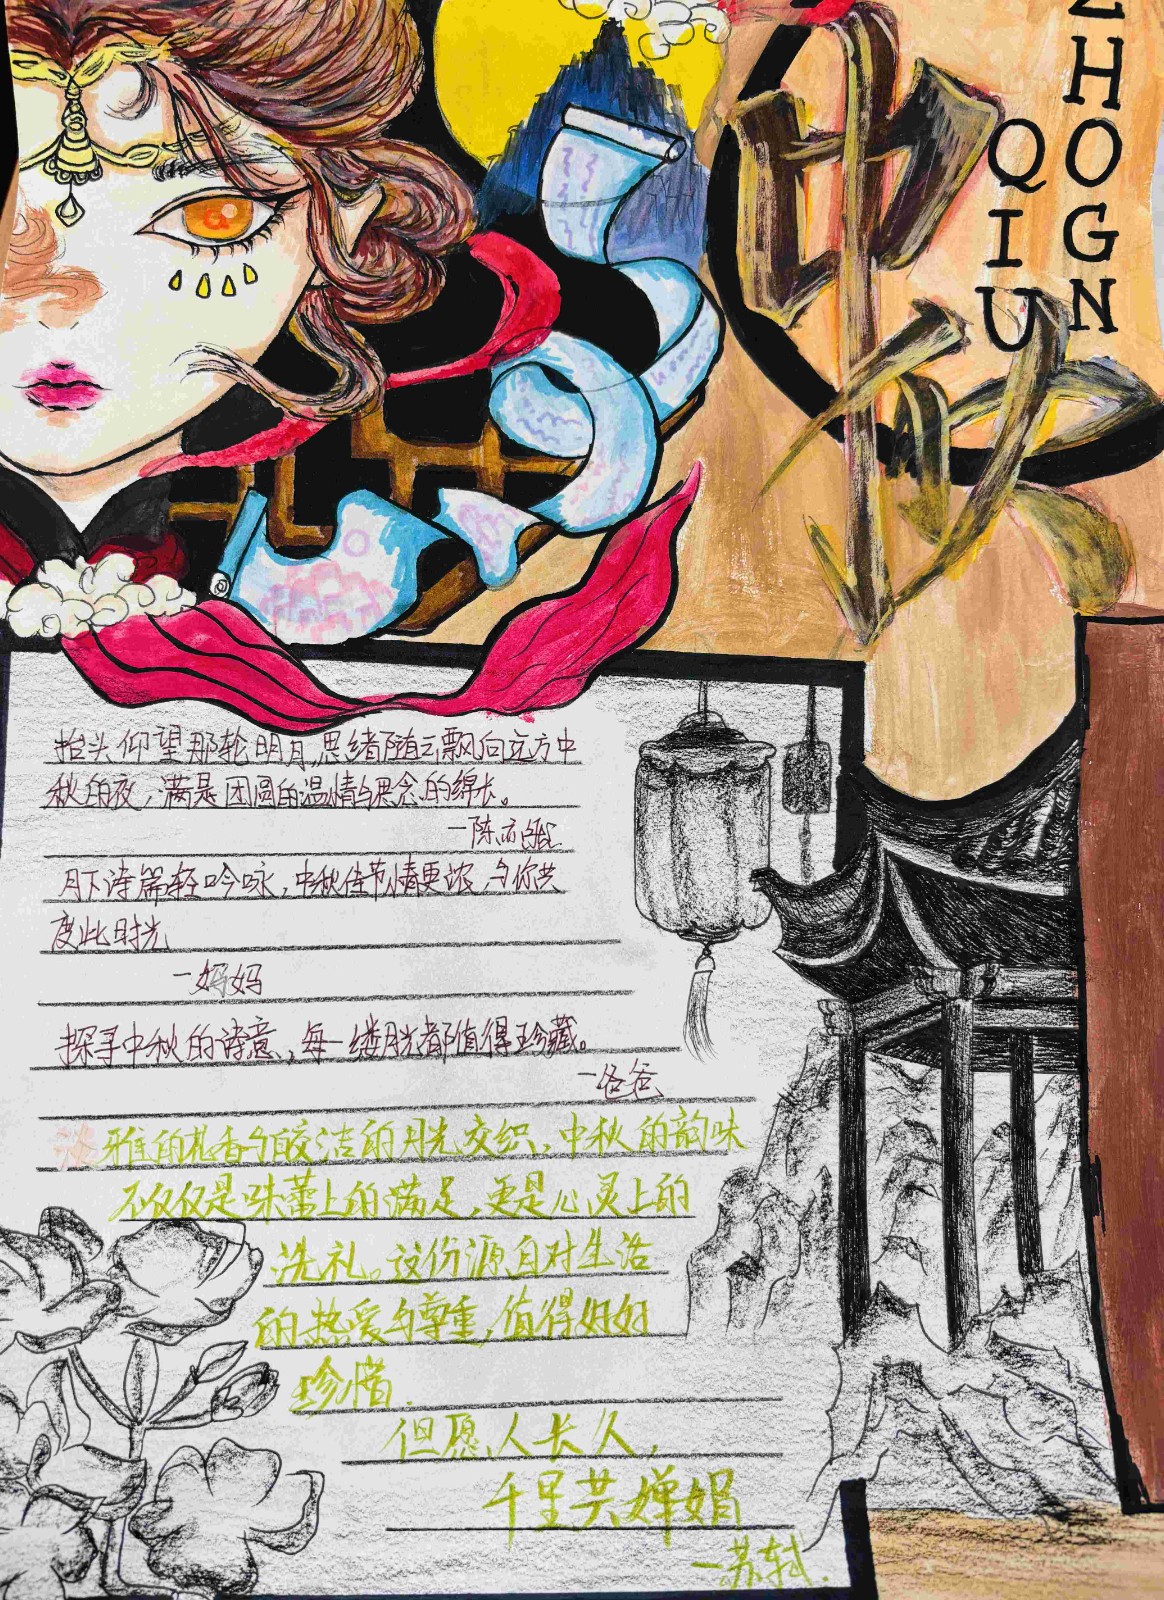 中秋
ZHOGN
QIU
抬头仰望那轮明月,思绪随云飘向远方中
秋的夜,满是团圆的温情与思念的绵长。
一陈亦
月下诗篇轻吟咏,中秋佳节情更浓,与你共
度此时光
一妈妈
探寻中秋的诗意,每一缕月光都值得珍藏。
一爸爸
淡雅的花香与皎洁的月光交织,中秋的韵味
不仅仅是味蕾上的满足,更是心灵上的
洗礼。这份源自对生活
的热爱与尊重,值得好好
珍惜.
但愿人长久,
千里共婵娟
一苏轼.